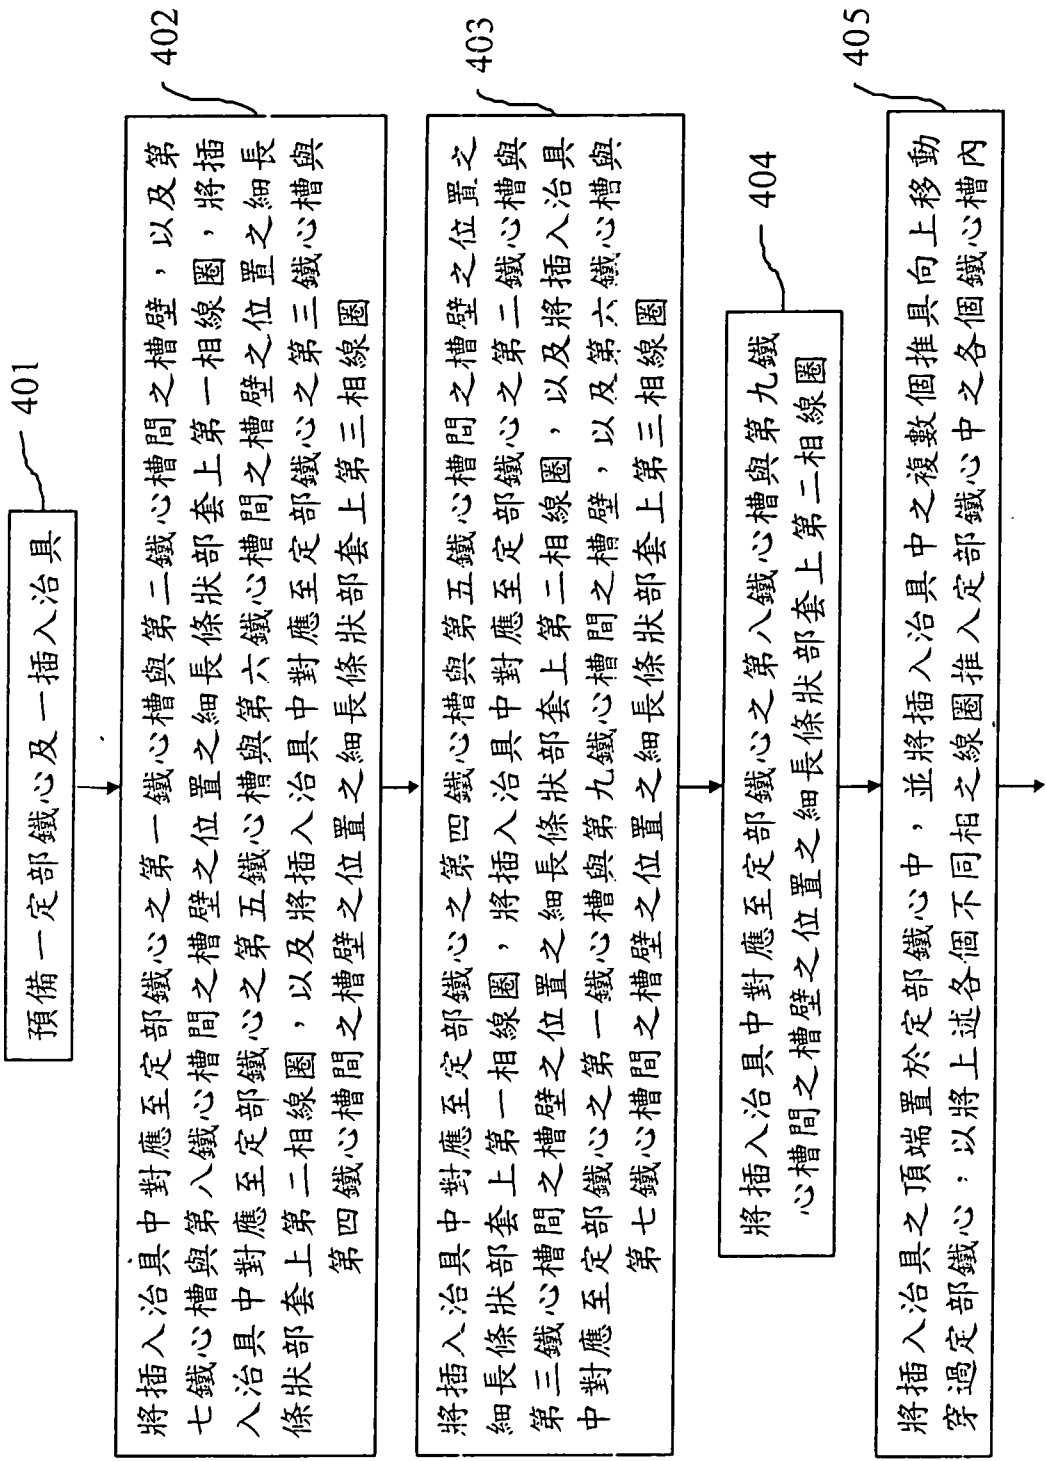 401
預備一定部鐵心及一插入治具
402
將插入治具中對應至定部鐵心之第一鐵心槽與第二鐵心槽間之槽壁，以及第
七鐵心槽與第八鐵心槽間之槽壁之位置之細長條狀部套上第一相線圈，將插
入治具中對應至定部鐵心之第五鐵心槽與第六鐵心槽間之槽壁之位置之細長
條狀部套上第二相線圈，以及將插入治具中對應至定部鐵心之第三鐵心槽與
第四鐵心槽間之槽壁之位置之細長條狀部套上第三相線圈
403
將插入治具中對應至定部鐵心之第四鐵心槽與第五鐵心槽間之槽壁之位置之
細長條狀部套上第一相線圈，將插入治具中對應至定部鐵心之第二鐵心槽與
第三鐵心槽間之槽壁之位置之細長條狀部套上第二相線圈，以及將插入治具
中對應至定部鐵心之第一鐵心槽與第九鐵心槽間之槽壁，以及第六鐵心槽與
第七鐵心槽間之槽壁之位置之細長條狀部套上第三相線圈
404
將插入治具中對應至定部鐵心之第八鐵心槽與第九鐵
心槽間之槽壁之位置之細長條狀部套上第二相線圈
405
將插入治具之頂端置於定部鐵心中，並將插入治具中之複數個推具向上移動
穿過定部鐵心，以將上述各個不同相之線圈推入定部鐵心中之各個鐵心槽內